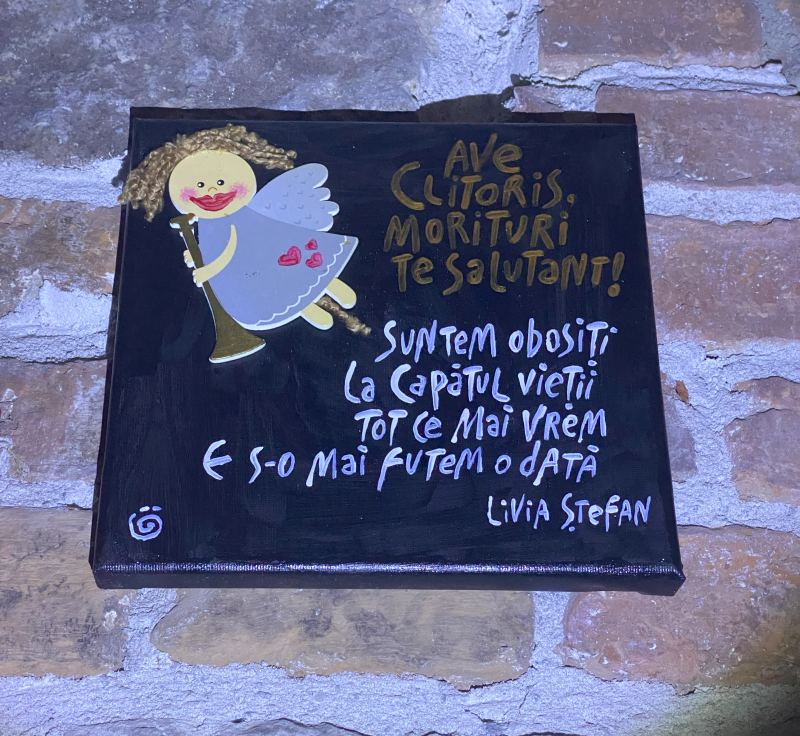 AVE
CLITORIS,
MORITURI
TE SALUTANT!
SUNTEM OBOSIȚI
LA CAPĂTUL VIEȚII
TOT CE MAI VREM
E S-O MAI FUTEM O DATĂ
LIVIA ȘTEFAN